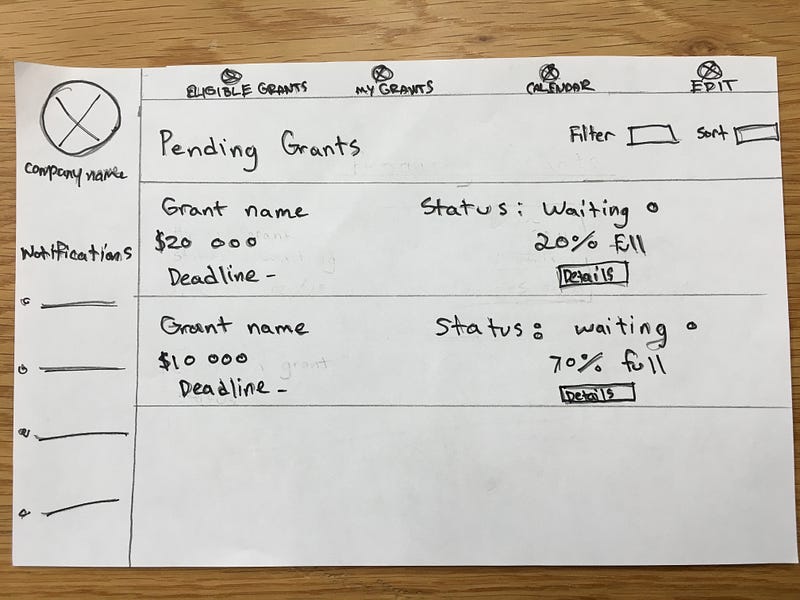 ELIGIBLE GRANTS MY GRANTS CALENDAR EDIT
company name
Notifications
Pending Grants Filter Sort
Grant name Status: Waiting
$20 000 20% full
Deadline - Details
Grant name Status: waiting
$10 000 70% full
Deadline - Details